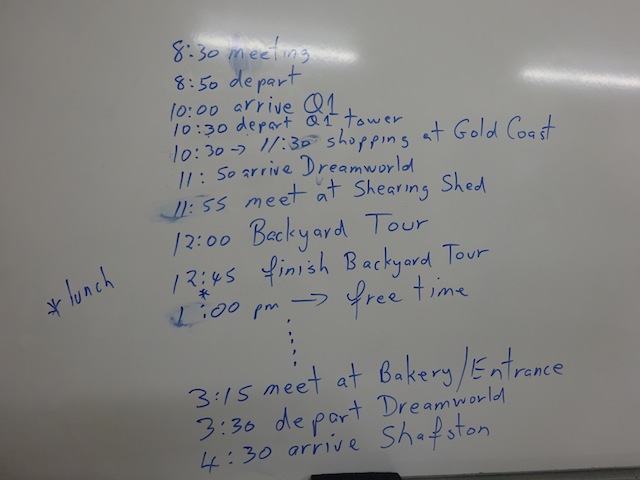 8:30 meeting
8:50 depart
10:00 arrive Q1
10:30 depart Q1 tower
10:30 → 11:30 shopping at Gold Coast
11:50 arrive Dreamworld
11:55 meet at Shearing Shed
12:00 Backyard Tour
12:45 finish Backyard Tour
* lunch
*
1:00 pm → free time
3:15 meet at Bakery/Entrance
3:30 depart Dreamworld
4:30 arrive Shafston